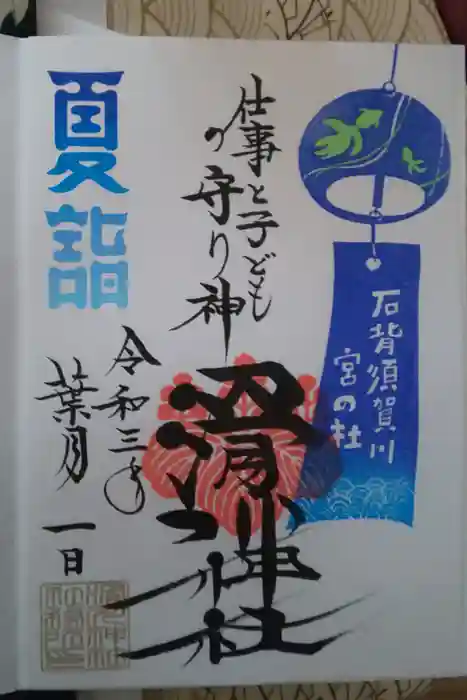 夏詣
仕事と子ども
の守り神
石背須賀川
宮の杜
滑川神社
令和三年
葉月一日